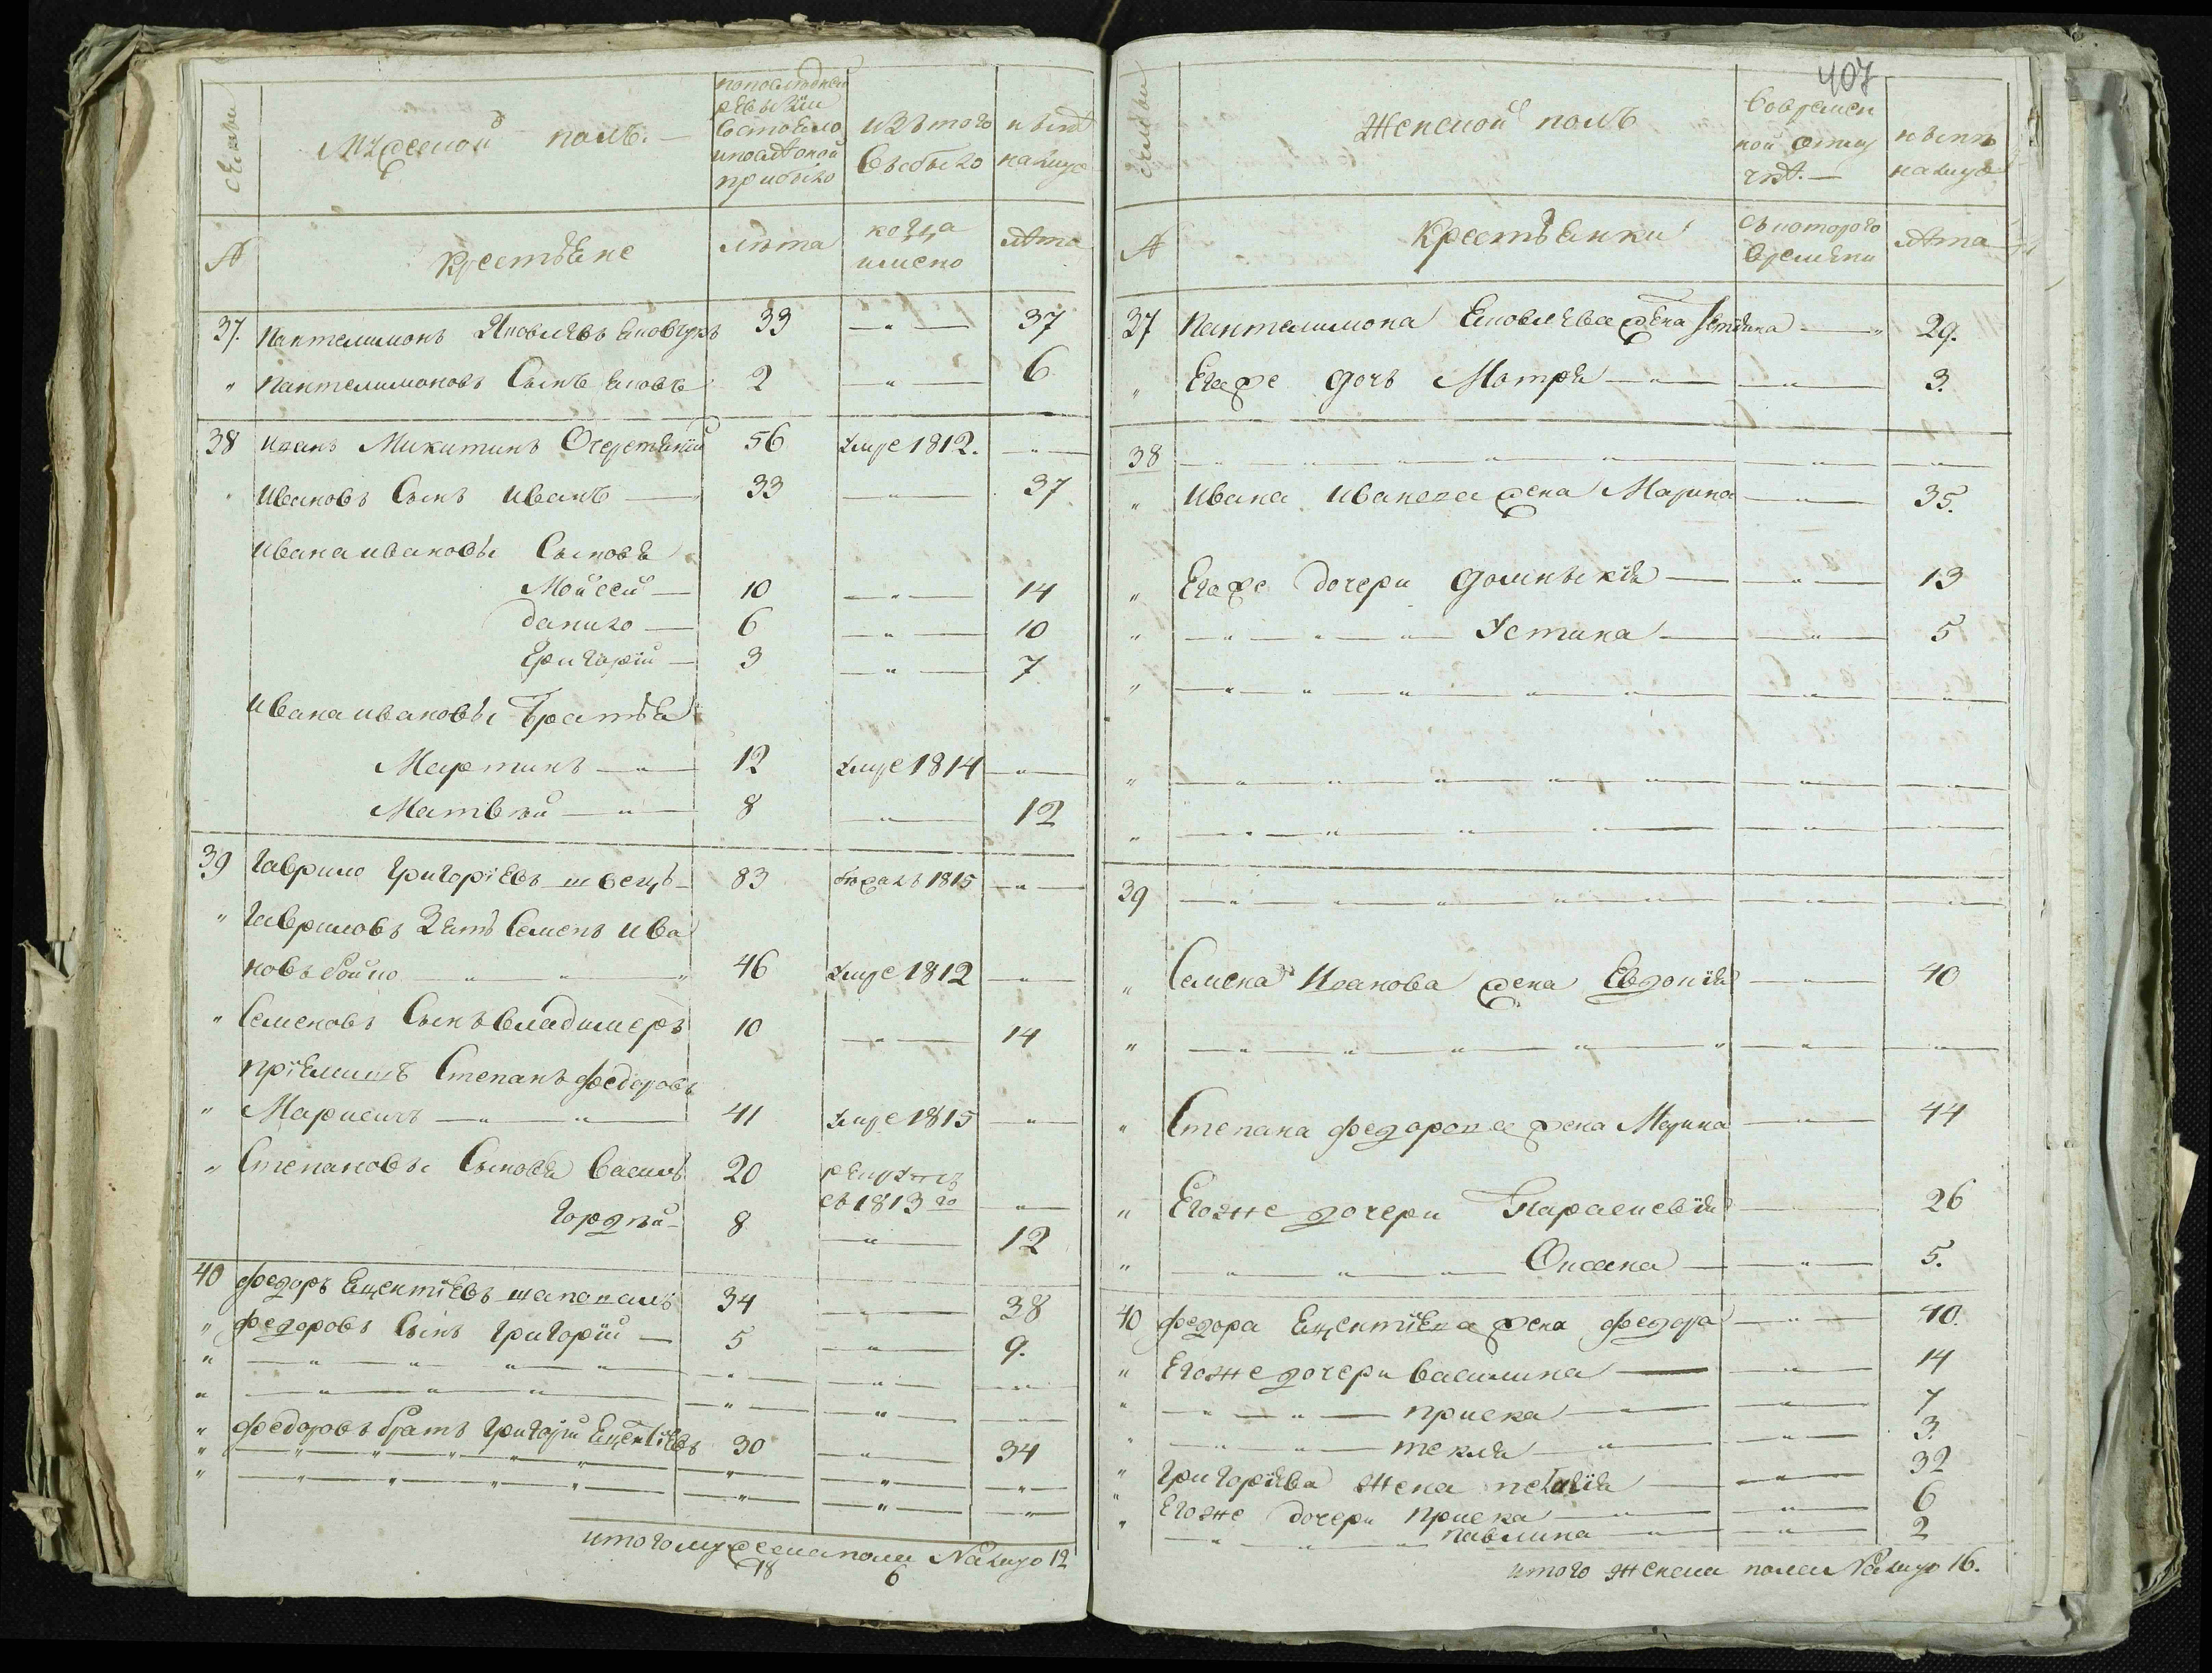 семьи
Мужеской полъ.
попоследней
ревизïи
Состояло
ипослѣоной
прибыло
изътого
Выбыло
нынѣ
налицо
№
Крестьяне
лѣта
когда
имѣно
лѣта
37. Пантелимонъ Яковлевъ Яковчукъ 33 — " — 37
" Пантелимоновъ Сынъ Яковъ 2 — " — 6
38 Иванъ Микитинъ Очеретяный 56 умре 1812. — " —
" Ивановъ Сынъ Иванъ — 33 — " — 37
Иванаивановы Сыновя
Мойсей — 10 — " — 14
данило — 6 — " — 10
Григорïй — 3 — " — 7
Иванаивановы Братья
Мартинъ — " — 12 умре 1814 — " —
Матвѣй — " — 8 — " — 12
39 Гаврило Григорïевъ швецъ — 83 бѣжалъ 1815 — " —
" Гавриловъ Зять Семенъ Ива
новъ Бойко — " — " 46 умре 1812 — " —
" Семеновъ Сынъ владимеръ 10 — " — 14
прïемишъ Степанъ федоровъ
" Мариничъ — " — " — 41 умре 1815 — " —
" Степановы Сыновя Василь 20 рекрутъ
съ 1813 го — " —
Гордѣй — 8 — " — 12
40 федоръ Ецентïевъ шаповалъ 34 — " — 38
" федоровъ Сынъ Григорïй — 5 — " — 9.
" — " — " — " — " — " — " — " —
" — " — " — " — " — " — " — " —
" федоровъ братъ Григорïй Ецентïевъ 30 — " — 34
" — " — " — " — " — " — " — " —
" — " — " — " — " — " — " — " —
итогомужескапола Налицо 12
18 6
407
семьи
Женской полъ
Вовремен
ной отлу
чкѣ. —
нынѣ
налицо
№
Крестьянки
Съкоторого
времяни
лѣта
37 Пантелимона Яковлева жена — " 29.
" Егоже дочь Мотря — " — — " — 3.
38 — " — " — " — " — " — — " — — " —
" Ивана Иванова жена Марина — " — 35.
" Егоже дочери Домникïя — — " — 13
" — " — " — " — Устина — — " — 5
" — " — " — " — " — " — — " — — " —
" — " — " — " — " — " — — " — — " —
" — " — " — " — " — — " — — " —
39 — " — " — " — " — " — — " — — " —
" Семена Иванова жена Евдокïя — " — 40
" — " — " — " — " — " — " — — " —
" Степана федорова жена Марина — " — 44
" Егоже дочери Параскевïя — " — 26
" — " — " — " — Оксана — — " — 5.
40 федора Ецентïева жена федора — " — 40.
" Егоже дочери василина — — " — 14
" — " — " — приска — " — — " — 7
" — " — " — текля — " — — " — 3.
" Григорïева жена пелагïя — — " — 32
" Егоже дочери Приска — " — — " — 6
" — " — " — " — павлина — " — — " — 2
итого женска полаи Налицо 16.